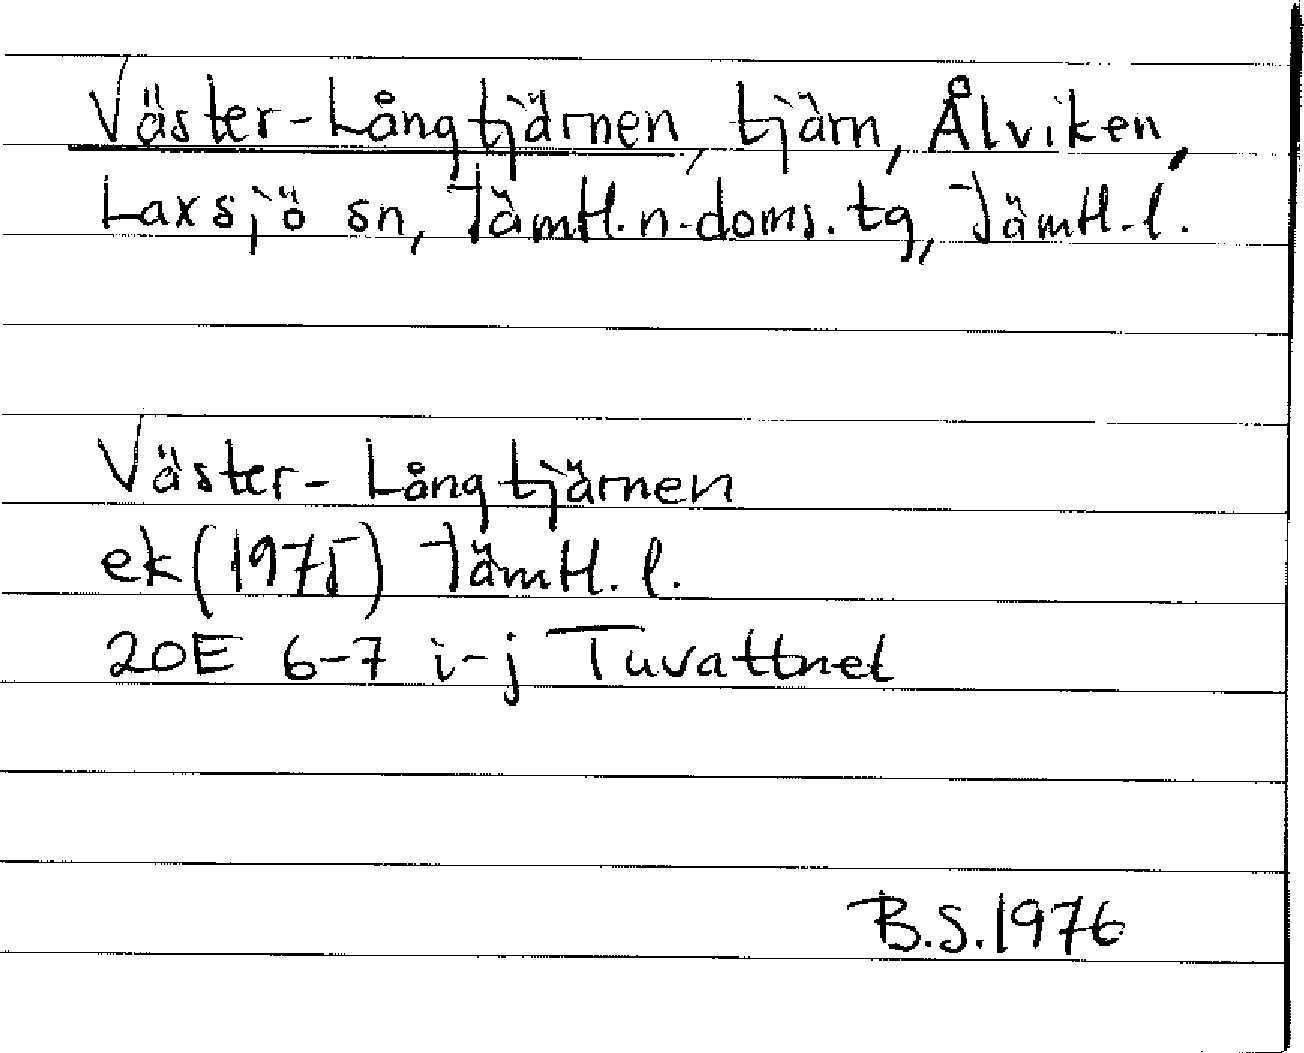 Väster-Långtjärnen, tjärn, Ålviken,
Laxsjö sn, Jämtl.n.doms.tg, Jämtl.l.
Väster-Långtjärnen
ek(1975) Jämtl.l.
20E 6-7 i-j Tuvattnet
B.S.1976